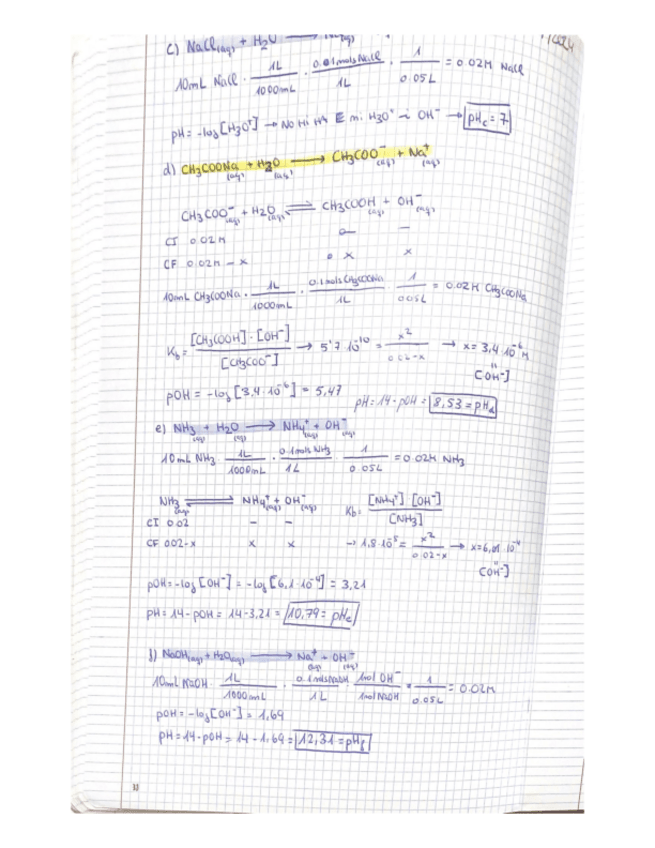 c) NaCl(aq) + H2O ⟶ (aq)
10mL NaCl · 1L/1000mL · 0.01mols NaCl/1L · 1/0.05L = 0.02M NaCl
pH = -log [H3O+] → No Hi H+ ni H3O+ ni OH- → pHc = 7
d) CH3COONa(aq) + H2O(aq) ⟶ CH3COO-(aq) + Na+(aq)
CH3COO-(aq) + H2O(aq) ⇌ CH3COOH(aq) + OH-(aq)
CI 0.02M — —
CF 0.02M - x x x
10mL CH3COONa · 1L/1000mL · 0.1mols CH3COONa/1L · 1/0.05L = 0.02M CH3COONa
Kb = [CH3COOH]·[OH-]/[CH3COO-] → 5'7·10^-10 = x²/0.02-x → x = 3,4·10^-6 M
[OH-]
pOH = -log [3,4·10^-6] = 5,47
pH = 14 - pOH = 8,53 = pHd
e) NH3(aq) + H2O(aq) ⟶ NH4+ + OH-(aq)
10mL NH3 · 1L/1000mL · 0.1mols NH3/1L · 1/0.05L = 0.02M NH3
NH3(aq) ⇌ NH4+(aq) + OH-(aq) Kb = [NH4+]·[OH-]/[NH3]
CI 0.02 — —
CF 0.02-x x x → 1,8·10^-5 = x²/0.02-x → x = 6,01·10^-4
[OH-]
pOH = -log [OH-] = -log [6,1·10^-4] = 3,21
pH = 14 - pOH = 14 - 3,21 = 10,79 = pHe
f) NaOH(aq) + H2O(aq) ⟶ Na+(aq) + OH-(aq)
10mL NaOH · 1L/1000mL · 0.1mols NaOH/1L · 1mol OH-/1mol NaOH · 1/0.05L = 0.02M
pOH = -log [OH-] = 1,69
pH = 14 - pOH = 14 - 1,69 = 12,31 = pHf